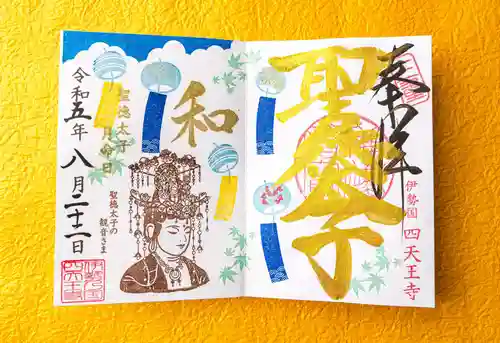 奉拝
聖太子
伊勢国 四天王寺
和
聖徳太子
月命日
聖徳太子の
観音さま
令和五年八月二十二日